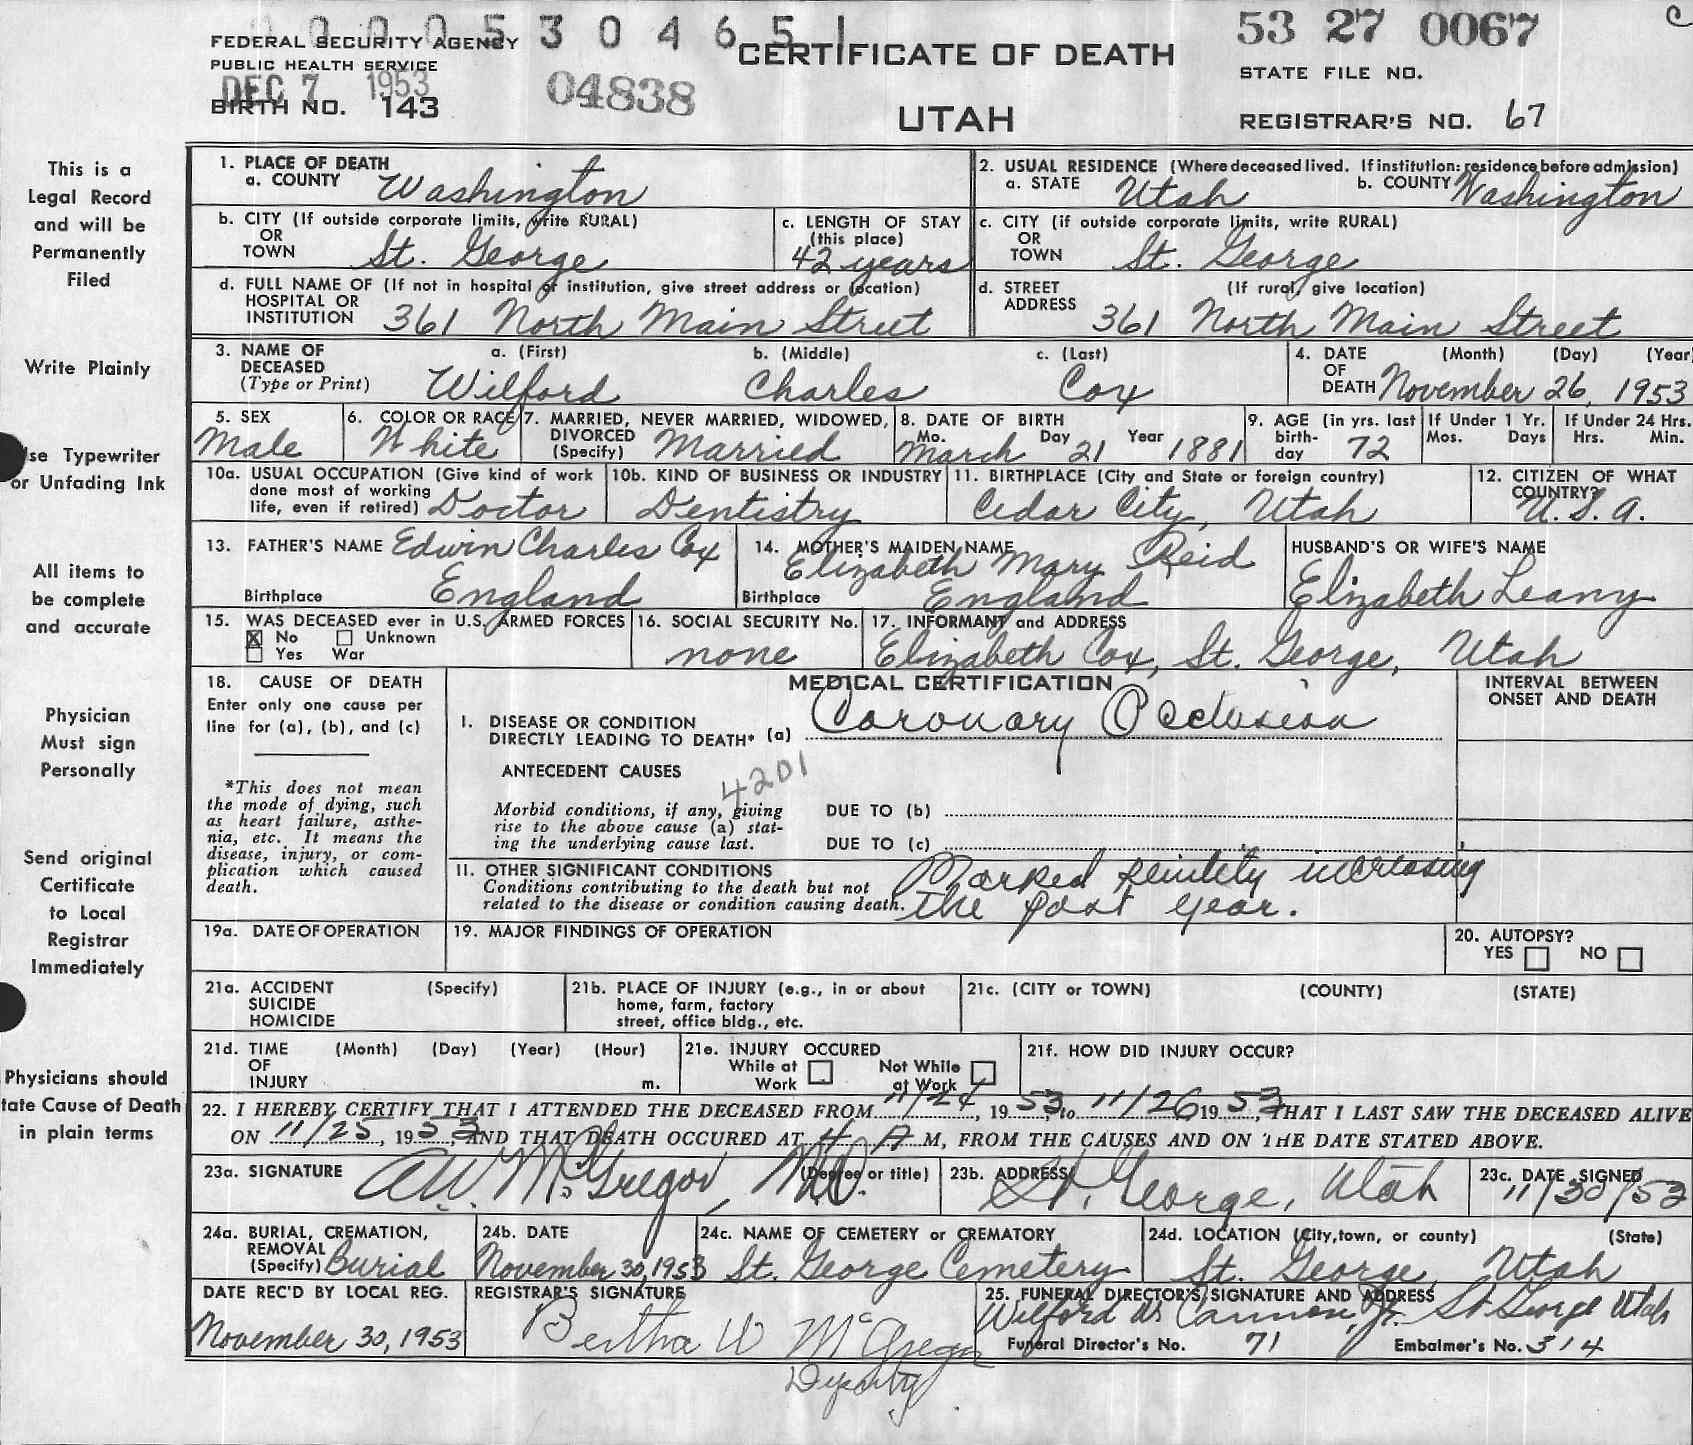 0000530465 1
53 27 0067
FEDERAL SECURITY AGENCY
PUBLIC HEALTH SERVICE
DEC 7 1953
BIRTH NO. 143
04838
CERTIFICATE OF DEATH
UTAH
STATE FILE NO.
REGISTRAR'S NO. 67
This is a
Legal Record
and will be
Permanently
Filed
Write Plainly
se Typewriter
or Unfading Ink
All items to
be complete
and accurate
Physician
Must sign
Personally
Send original
Certificate
to Local
Registrar
Immediately
Physicians should
tate Cause of Death
in plain terms
1. PLACE OF DEATH
a. COUNTY Washington
2. USUAL RESIDENCE (Where deceased lived. If institution: residence before admission)
a. STATE Utah b. COUNTY Washington
b. CITY (If outside corporate limits, write RURAL)
OR
TOWN St. George
c. LENGTH OF STAY
(this place)
42 years
c. CITY (if outside corporate limits, write RURAL)
OR
TOWN St. George
d. FULL NAME OF (If not in hospital or institution, give street address or location)
HOSPITAL OR
INSTITUTION 361 North Main Street
d. STREET (If rural, give location)
ADDRESS 361 North Main Street
3. NAME OF DECEASED (Type or Print)
a. (First) b. (Middle) c. (Last)
Wilford Charles Cox
4. DATE OF DEATH (Month) (Day) (Year
November 26, 1953
5. SEX
Male
6. COLOR OR RACE
White
7. MARRIED, NEVER MARRIED, WIDOWED,
DIVORCED
(Specify) Married
8. DATE OF BIRTH
Mo. Day Year
March 21 1881
9. AGE (in yrs. last
birth-
day 72
If Under 1 Yr.
Mos. Days
If Under 24 Hrs.
Hrs. Min.
10a. USUAL OCCUPATION (Give kind of work
done most of working
life, even if retired) Doctor
10b. KIND OF BUSINESS OR INDUSTRY
Dentistry
11. BIRTHPLACE (City and State or foreign country)
Cedar City, Utah
12. CITIZEN OF WHAT
COUNTRY?
U.S.A.
13. FATHER'S NAME Edwin Charles Cox
Birthplace England
14. MOTHER'S MAIDEN NAME
Elizabeth Mary Reid
Birthplace England
HUSBAND'S OR WIFE'S NAME
Elizabeth Leany
15. WAS DECEASED ever in U.S. ARMED FORCES
X No Unknown
Yes War
16. SOCIAL SECURITY No.
none
17. INFORMANT and ADDRESS
Elizabeth Cox, St. George, Utah
18. CAUSE OF DEATH
Enter only one cause per
line for (a), (b), and (c)
*This does not mean
the mode of dying, such
as heart failure, asthe-
nia, etc. It means the
disease, injury, or com-
plication which caused
death.
MEDICAL CERTIFICATION
I. DISEASE OR CONDITION
DIRECTLY LEADING TO DEATH* (a) Coronary Occlusion
ANTECEDENT CAUSES
4201
Morbid conditions, if any, giving
rise to the above cause (a) stat-
ing the underlying cause last.
DUE TO (b)
DUE TO (c)
INTERVAL BETWEEN
ONSET AND DEATH
11. OTHER SIGNIFICANT CONDITIONS
Conditions contributing to the death but not
related to the disease or condition causing death.
Marked senility increasing
the past year.
19a. DATE OF OPERATION
19. MAJOR FINDINGS OF OPERATION
20. AUTOPSY?
YES NO
21a. ACCIDENT (Specify)
SUICIDE
HOMICIDE
21b. PLACE OF INJURY (e.g., in or about
home, farm, factory
street, office bldg., etc.
21c. (CITY or TOWN) (COUNTY) (STATE)
21d. TIME (Month) (Day) (Year) (Hour)
OF
INJURY m.
21e. INJURY OCCURED
While at Work
Not While at Work
21f. HOW DID INJURY OCCUR?
22. I HEREBY CERTIFY THAT I ATTENDED THE DECEASED FROM 11/24, 19 53, to 11/26 19 53, THAT I LAST SAW THE DECEASED ALIVE
ON 11/25, 19 53 AND THAT DEATH OCCURED AT 4 A M, FROM THE CAUSES AND ON THE DATE STATED ABOVE.
23a. SIGNATURE (Degree or title)
A.W. McGregor, M.D.
23b. ADDRESS
St. George, Utah
23c. DATE SIGNED
11/30/53
24a. BURIAL, CREMATION,
REMOVAL
(Specify) Burial
24b. DATE
November 30, 1953
24c. NAME OF CEMETERY or CREMATORY
St. George Cemetery
24d. LOCATION (City, town, or county) (State)
St. George, Utah
DATE REC'D BY LOCAL REG.
November 30, 1953
REGISTRAR'S SIGNATURE
Bertha W McGregor
Deputy
25. FUNERAL DIRECTOR'S SIGNATURE AND ADDRESS
Wilford W. Cannon, Jr. St George Utah
Funeral Director's No. 71 Embalmer's No. 314